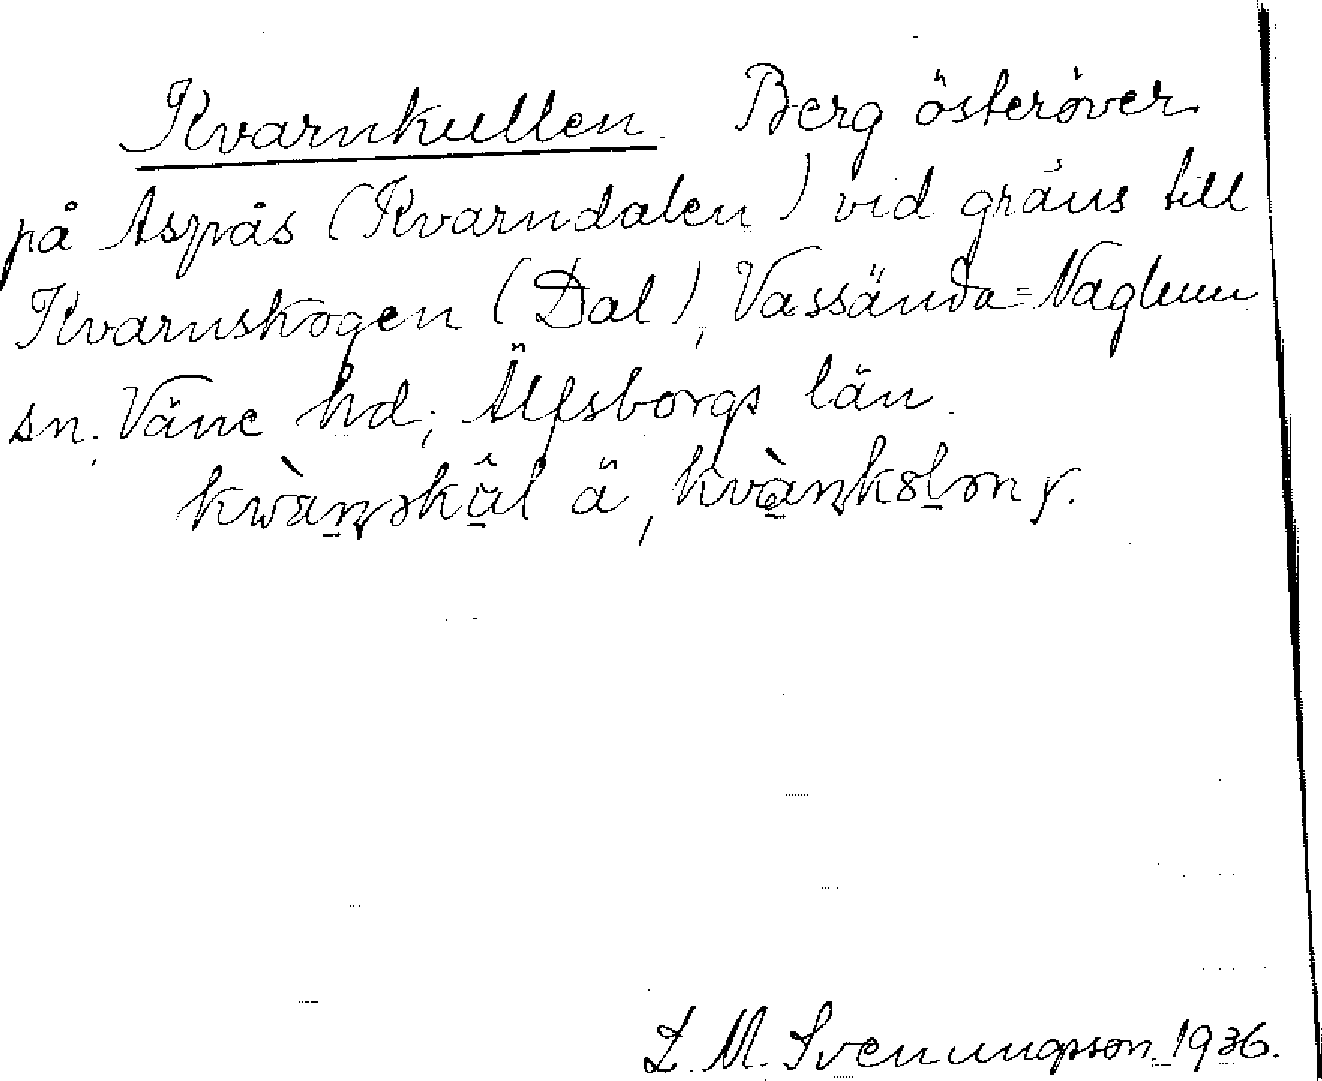 Kvarnkullen. Berg österöver
på Aspås (Kvarndalen) vid gräns till
Kvarnskogen (Dal), Vassända=Naglum
sn. Väne hd; Älfsborgs län.
ä, y.
L. M. Svenungsson 1936.